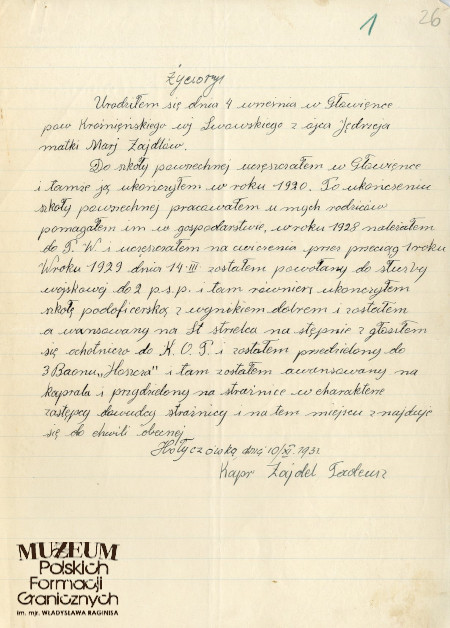 1
26
Życiorys
Urodziłem się dnia 4 września w Głowience
pow Krośnieńskiego wj Lwowskiego z ojca Jędrzeja
matki Marj Zajdlów.
Do szkoły powrzechnej uczęszczałem w Głowience
i tamże ją ukończyłem w roku 1920. Po ukończeniu
szkoły powrzechnej pracowałem u mych rodziców
pomagałem im w gospodarstwie, w roku 1928 należałem
do P. W. i uczęszczałem na ćwiczenia przez przeciąg 1 roku
W roku 1929 dnia 14 III zostałem powołany do służby
wojskowej do 2 p.s.p. i tam również ukończyłem
szkołę podoficerską z wynikiem dobrem i zostałem
a wansowany na St strzelca na stępnie z głosiłem
się ochotniczo do K. O. P. i zostałem przedzielony do
3 Baonu „Hoszcza" i tam zostałem awansowany na
kaprala i przydzielony na strażnice w charakterze
zastępcy dowódcy strażnicy i na tem miejscu znajduje
się do chwili obecnej
Hołyczówka dnia 10/XI. 1931
Kapr Zajdel Tadeusz
MUZEUM
Polskich
Formacji
Granicznych
im. mjr. WŁADYSŁAWA RAGINISA